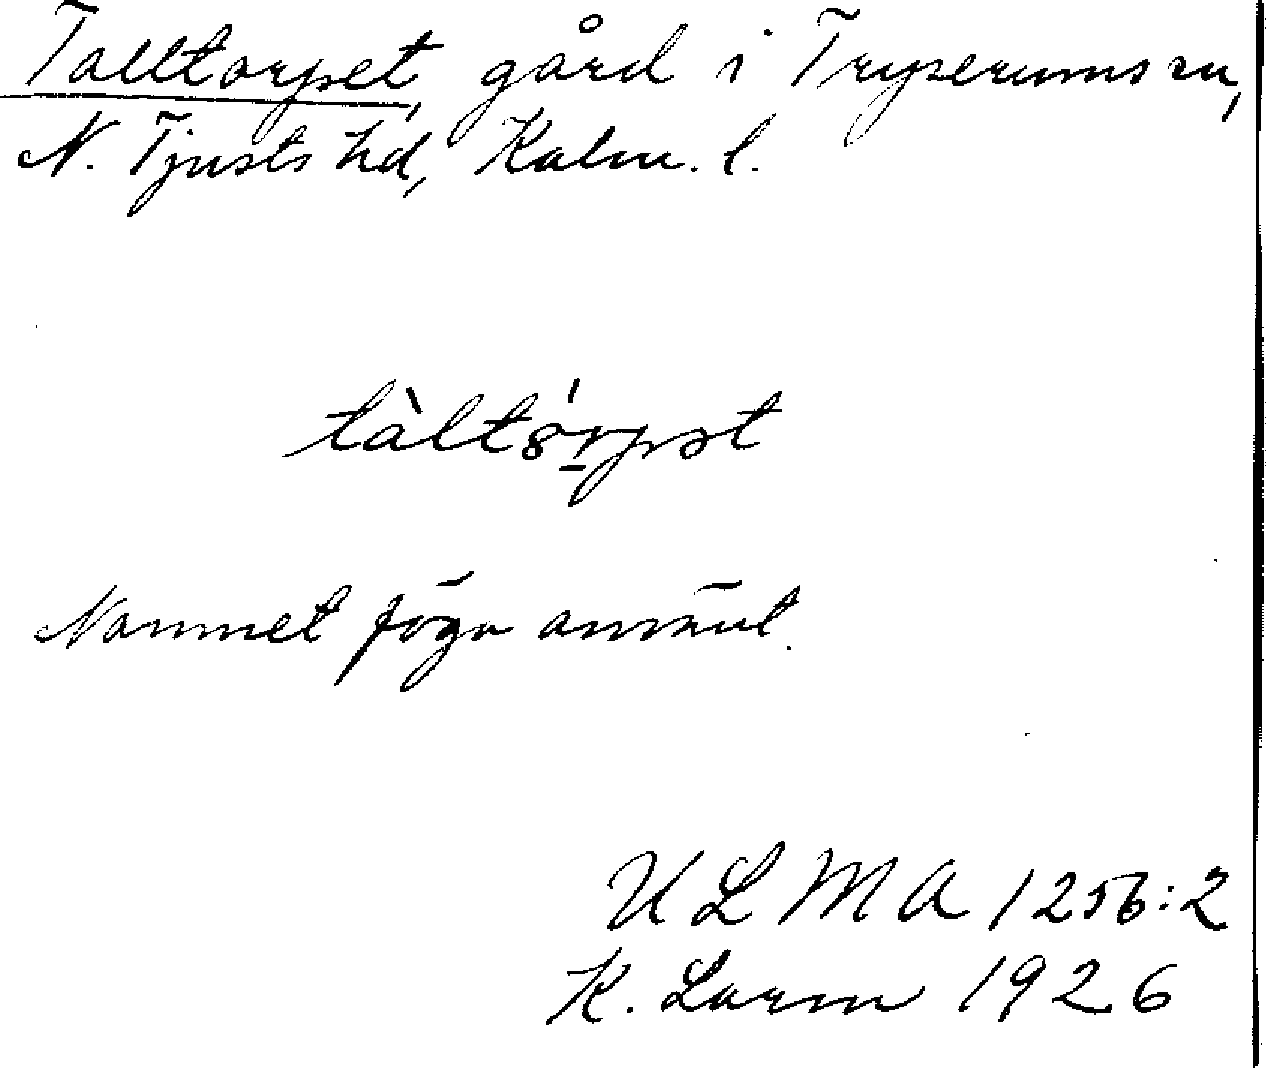 Talltorpet, gård i Tryserums sn,
N. Tjusts hd, Kalm. l.
tàltórpət
Namnet föga använt.
ULMA 1256:2
K. Larm 1926